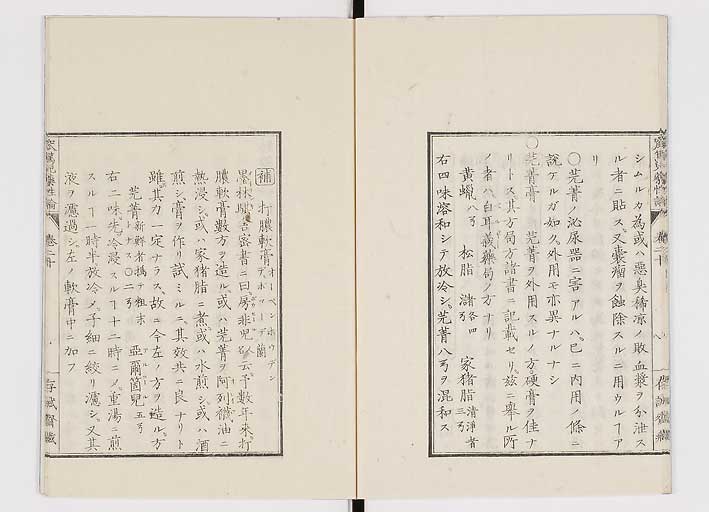 シムルカ為或ハ悪臭稀凉ノ敗血漿ヲ分泄ス
ル者ニ貼ス又嚢瘤ヲ蝕除スルニ用ウルヿア
リ
〇芫菁ノ泌尿器ニ害アルハ已ニ内用ノ條ニ
説ケルガ如ク外用モ亦異ナルナシ
〇芫菁膏 芫菁ヲ外用スルノ方硬膏ヲ佳ナ
リトス其方局方諸書ニ記載セリ茲ニ擧ル所
ノ者ハ白耳義藥局ノ方ナリ
黄蠟 松脂 瀦 各四 家猪脂 清淨者 三
右四味溶和シテ放冷シ芫菁八ヲ混和ス
補 打膿軟膏 オーペンホウデン デポマーデ 蘭
密書ニ曰 云予數年来打
膿軟膏數方ヲ造ル或ハ芫菁ヲ阿列襪油ニ
熱浸シ或ハ家猪脂ニ煮或ハ水煎シ或ハ酒
煎シ膏ヲ作リ試ミルニ其效共ニ良ナリト
雖其力一定ナラス故ニ今左ノ方ヲ造ル方
芫菁 新鮮者擣テ粗末トナス 亞爾箇兒 五
右二味先冷浸スルヿ十二時ニメ重湯ニ煎
スルヿ一時半放冷メ子細ニ絞リ濾シ又其
液ヲ濾過シ左ノ軟膏中ニ加フ